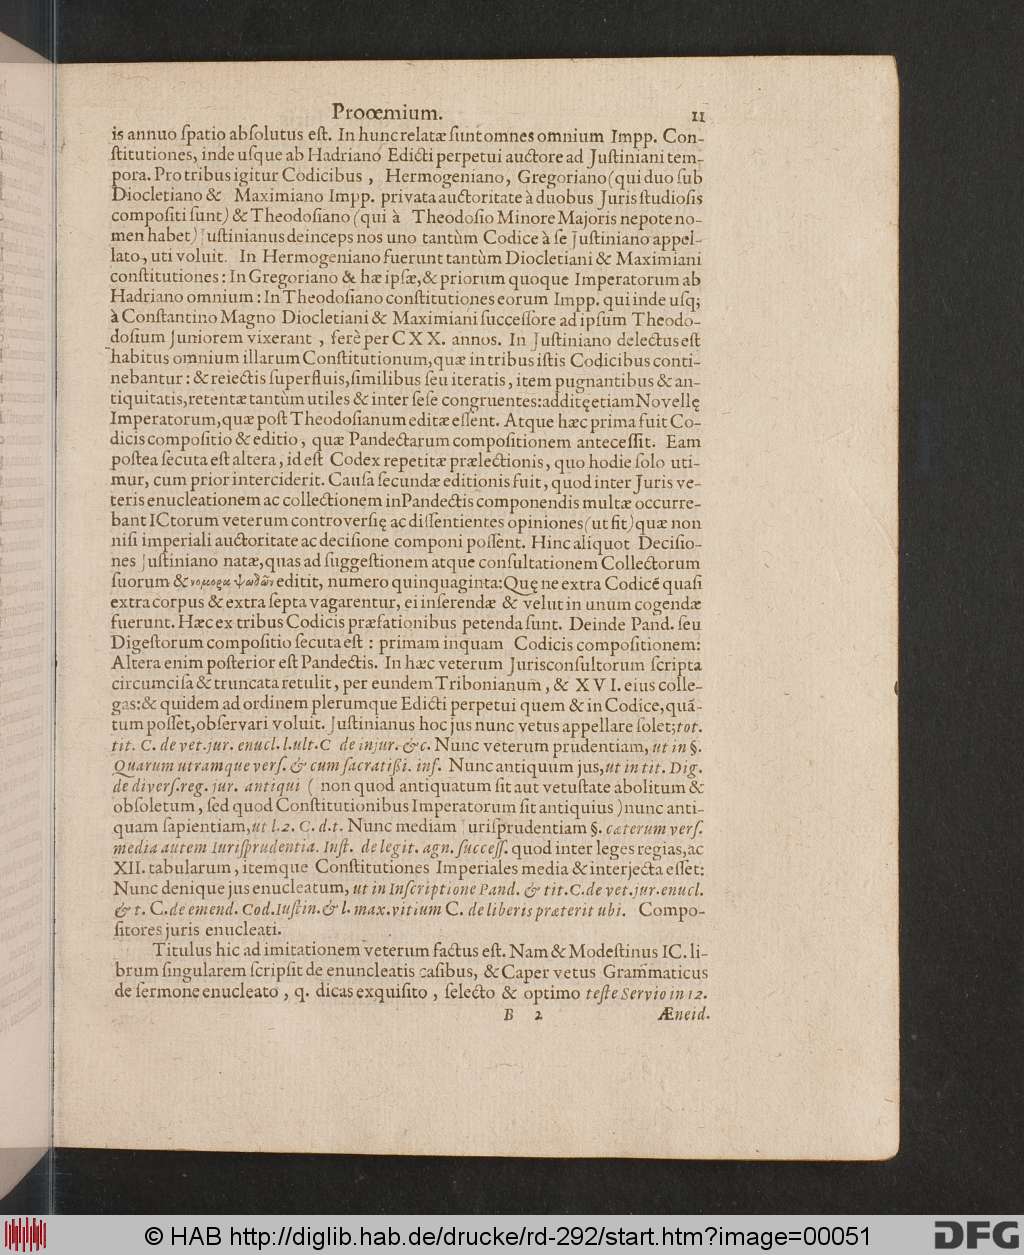 Prooemium. 11
is annuo ſpatio abſolutus eſt. In hunc relatæ ſunt omnes omnium Impp. Con-
ſtitutiones, inde uſque ab Hadriano Edicti perpetui auctore ad Juſtiniani tem-
pora. Pro tribus igitur Codicibus, Hermogeniano, Gregoriano (qui duo ſub
Diocletiano & Maximiano Impp. privata auctoritate à duobus Juris ſtudioſis
compoſiti ſunt) & Theodoſiano (qui à Theodoſio Minore Majoris nepote no-
men habet) Juſtinianus deinceps nos uno tantùm Codice à ſe Juſtiniano appel-
lato, uti voluit. In Hermogeniano fuerunt tantùm Diocletiani & Maximiani
conſtitutiones: In Gregoriano & hæ ipſæ, & priorum quoque Imperatorum ab
Hadriano omnium: In Theodoſiano conſtitutiones eorum Impp. qui inde uſq;
à Conſtantino Magno Diocletiani & Maximiani ſucceſſore ad ipſum Theodo-
doſium Juniorem vixerant, ferè per CXX. annos. In Juſtiniano delectus eſt
habitus omnium illarum Conſtitutionum, quæ in tribus iſtis Codicibus conti-
nebantur: & reiectis ſuperfluis, ſimilibus ſeu iteratis, item pugnantibus & an-
tiquitatis, retentæ tantùm utiles & inter ſeſe congruentes: additę etiam Novellę
Imperatorum, quæ poſt Theodoſianum editæ eſſent. Atque hæc prima fuit Co-
dicis compoſitio & editio, quæ Pandectarum compoſitionem anteceſſit. Eam
poſtea ſecuta eſt altera, id eſt Codex repetitæ prælectionis, quo hodie ſolo uti-
mur, cum prior interciderit. Cauſa ſecundæ editionis fuit, quod inter Juris ve-
teris enucleationem ac collectionem in Pandectis componendis multæ occurre-
bant ICtorum veterum controverſię ac diſſentientes opiniones (ut fit) quæ non
niſi imperiali auctoritate ac deciſione componi poſſent. Hinc aliquot Deciſio-
nes Juſtiniano natæ, quas ad ſuggeſtionem atque conſultationem Collectorum
ſuorum & editit, numero quinquaginta: Quę ne extra Codicē quaſi
extra corpus & extra ſepta vagarentur, ei inſerendæ & velut in unum cogendæ
fuerunt. Hæc ex tribus Codicis præfationibus petenda ſunt. Deinde Pand. ſeu
Digeſtorum compoſitio ſecuta eſt: primam inquam Codicis compoſitionem:
Altera enim poſterior eſt Pandectis. In hæc veterum Jurisconſultorum ſcripta
circumciſa & truncata retulit, per eundem Tribonianum, & XVI. eius colle-
gas: & quidem ad ordinem plerumque Edicti perpetui quem & in Codice, quā-
tum poſſet, obſervari voluit. Juſtinianus hoc jus nunc vetus appellare ſolet; tot.
tit. C. de vet. jur. enucl. l. ult. C de injur. &c. Nunc veterum prudentiam, ut in §.
Quarum utramque verſ. & cum ſacratißi. inſ. Nunc antiquum jus, ut in tit. Dig.
de diverſ. reg. jur. antiqui (non quod antiquatum ſit aut vetuſtate abolitum &
obſoletum, ſed quod Conſtitutionibus Imperatorum ſit antiquius) nunc anti-
quam ſapientiam, ut l. 2. C. d. t. Nunc mediam Jurisprudentiam §. cæterum verſ.
media autem Iuriſprudentia. Inſt. de legit. agn. ſucceſſ. quod inter leges regias, ac
XII. tabularum, itemque Conſtitutiones Imperiales media & interjecta eſſet:
Nunc denique jus enucleatum, ut in Inſcriptione Pand. & tit. C. de vet. jur. enucl.
& t. C. de emend. Cod. Iuſtin. & l. max. vitium C. de liberis præterit ubi. Compo-
ſitores juris enucleati.
Titulus hic ad imitationem veterum factus eſt. Nam & Modeſtinus IC. li-
brum ſingularem ſcripſit de enuncleatis caſibus, & Caper vetus Grammaticus
de ſermone enucleato, q. dicas exquiſito, ſelecto & optimo teſte Servio in 12.
B 2 Æneid.
© HAB http://diglib.hab.de/drucke/rd-292/start.htm?image=00051 DFG